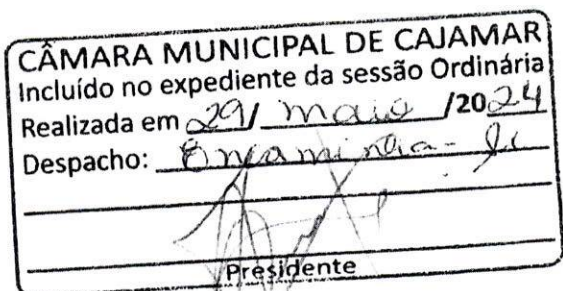 CÂMARA MUNICIPAL DE CAJAMAR
Incluído no expediente da sessão Ordinária
Realizada em 29/ maio /2024
Despacho: Encaminha-se
Presidente